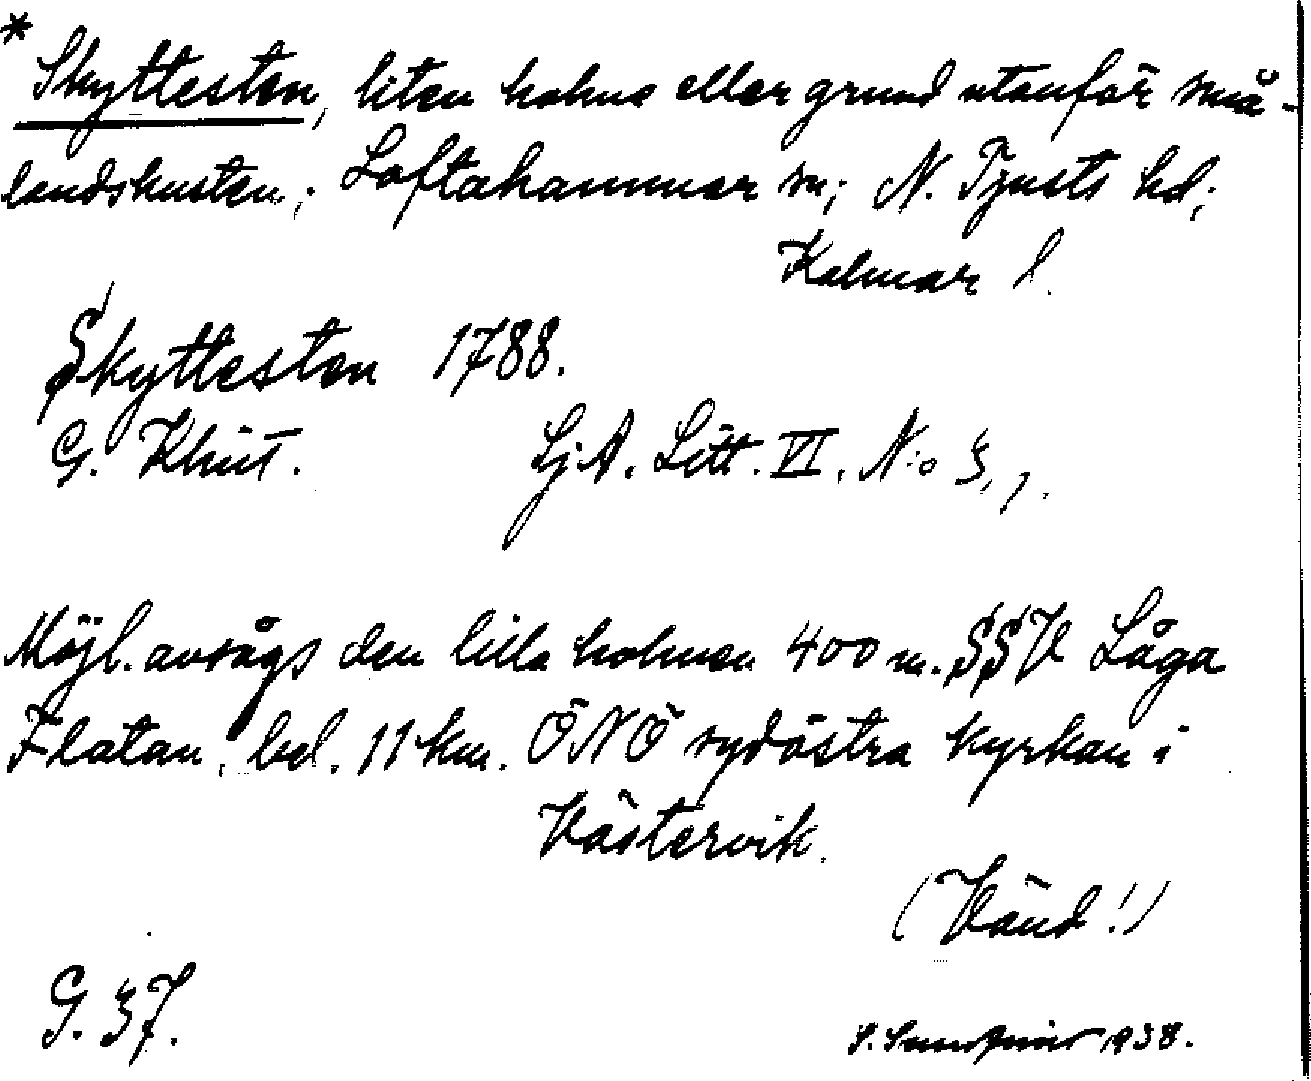 * Skyttesten, liten holme eller grund utanför små-
landskusten; Loftahammar sn; N. Tjusts hd;
Kalmar l.
Skyttesten 1788.
G. Klint. SjA. Litt. VI. N:o 3,1.
Möjl. avsågs den lilla holmen 400 m. SSV Låga
Flatan, bel. 11 km. ÖNÖ sydöstra kyrkan i
Västervik.
(Vänd!)
G. 37.
S. 1938.